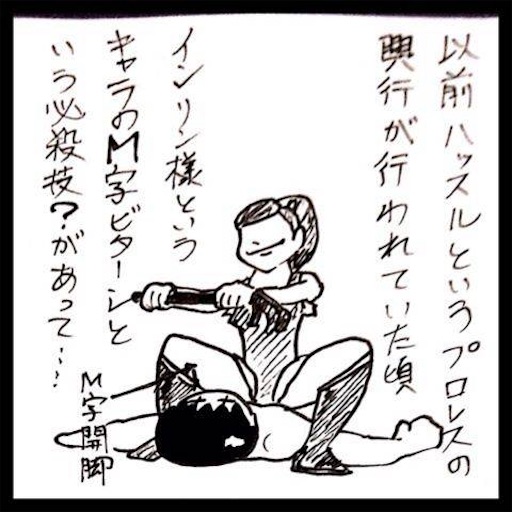 以前ハッスルというプロレスの
興行が行われていた頃
インリン様という
キャラのM字ビターンと
いう必殺技?があって…
M字開脚